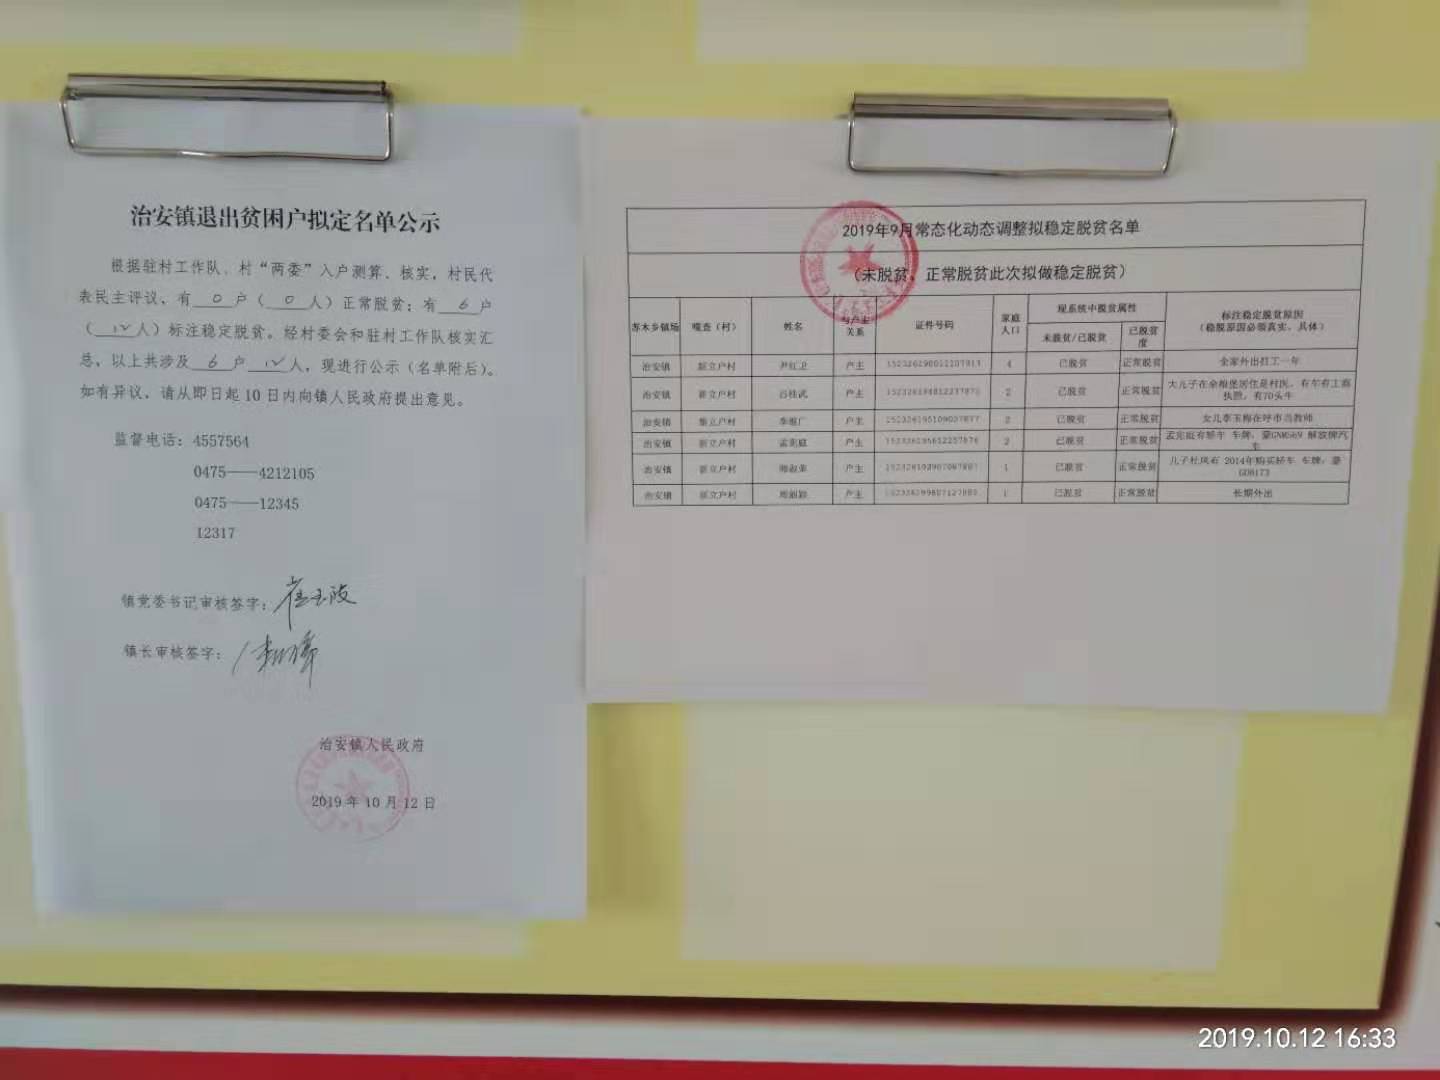 治安镇退出贫困户拟定名单公示
根据驻村工作队、村“两委”入户测算、核实,村民代
表民主评议,有 0 户( 0 人)正常脱贫;有 6 户
( 12 人)标注稳定脱贫。经村委会和驻村工作队核实汇
总,以上共涉及 6 户 12 人,现进行公示(名单附后)。
如有异议,请从即日起10日内向镇人民政府提出意见。
监督电话:4557564
0475——4212105
0475——12345
12317
镇党委书记审核签字:
镇长审核签字:
治安镇人民政府
2019年10月12日
2019年9月常态化动态调整拟稳定脱贫名单
(未脱贫、正常脱贫此次拟做稳定脱贫)
苏木乡镇场 嘎查(村) 姓名 与户主关系 证件号码 家庭人口 现系统中脱贫属性 标注稳定脱贫原因(稳脱原因必须真实、具体)
未脱贫/已脱贫 已脱贫 度
治安镇 新立户村 尹红卫 户主 4 已脱贫 正常脱贫 全家外出打工一年
治安镇 新立户村 户主 2 已脱贫 正常脱贫 大儿子在余粮堡居住是村医,有车有工商执照,有70头牛
治安镇 新立户村 户主 2 已脱贫 正常脱贫 女儿李玉梅在呼市当教师
治安镇 新立户村 孟宪庭 户主 2 已脱贫 正常脱贫 孟宪庭有轿车 车牌:解放牌汽车
治安镇 新立户村 户主 1 已脱贫 正常脱贫 儿子杜凤石 2014年购买轿车 车牌:蒙
治安镇 新立户村 户主 1 已脱贫 正常脱贫 长期外出
2019.10.12 16:33